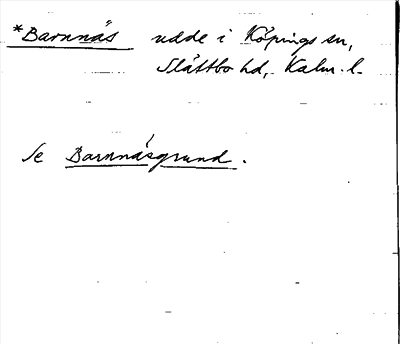 *Barnnäs udde i Köpings sn,
Slättbo hd, Kalm. l.
Se Barnnäsgrund.